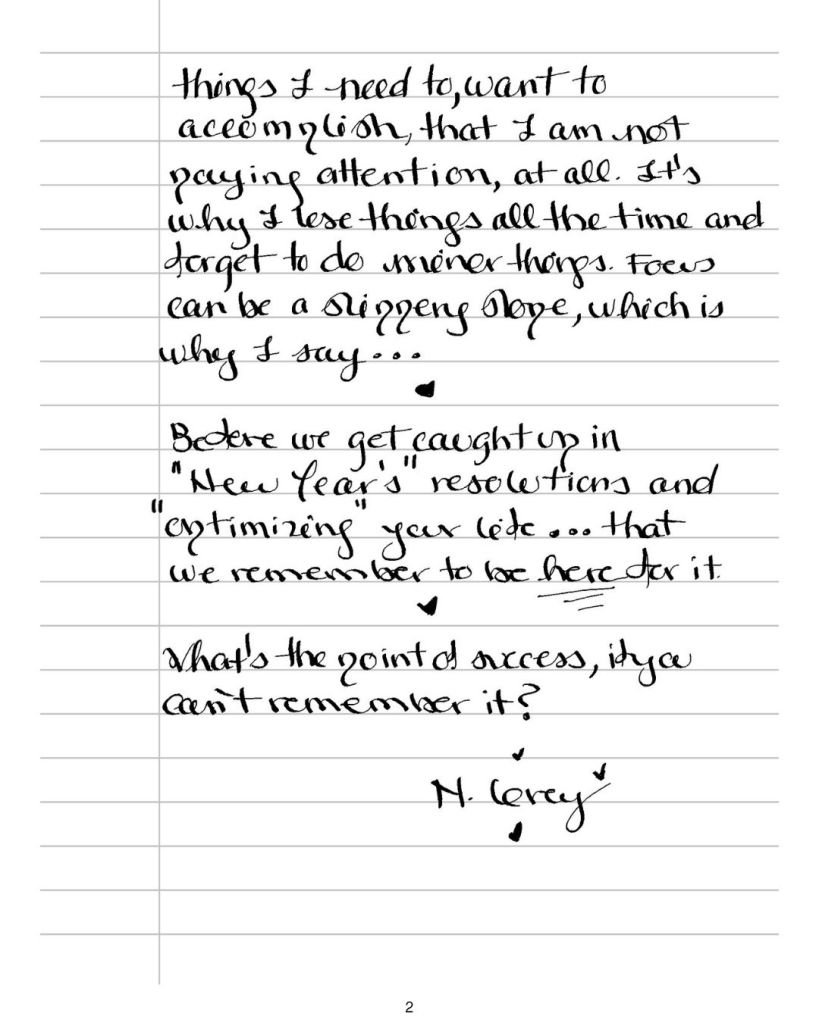 things I need to, want to
accomplish, that I am not
paying attention, at all. It's
why I lose things all the time and
forget to do minor things. Focus
can be a slippery slope, which is
why I say...
Before we get caught up in
"New Year's" resolutions and
"optimizing" your life... that
we remember to be here for it.
What's the point of success, if ya
can't remember it?
N.
2